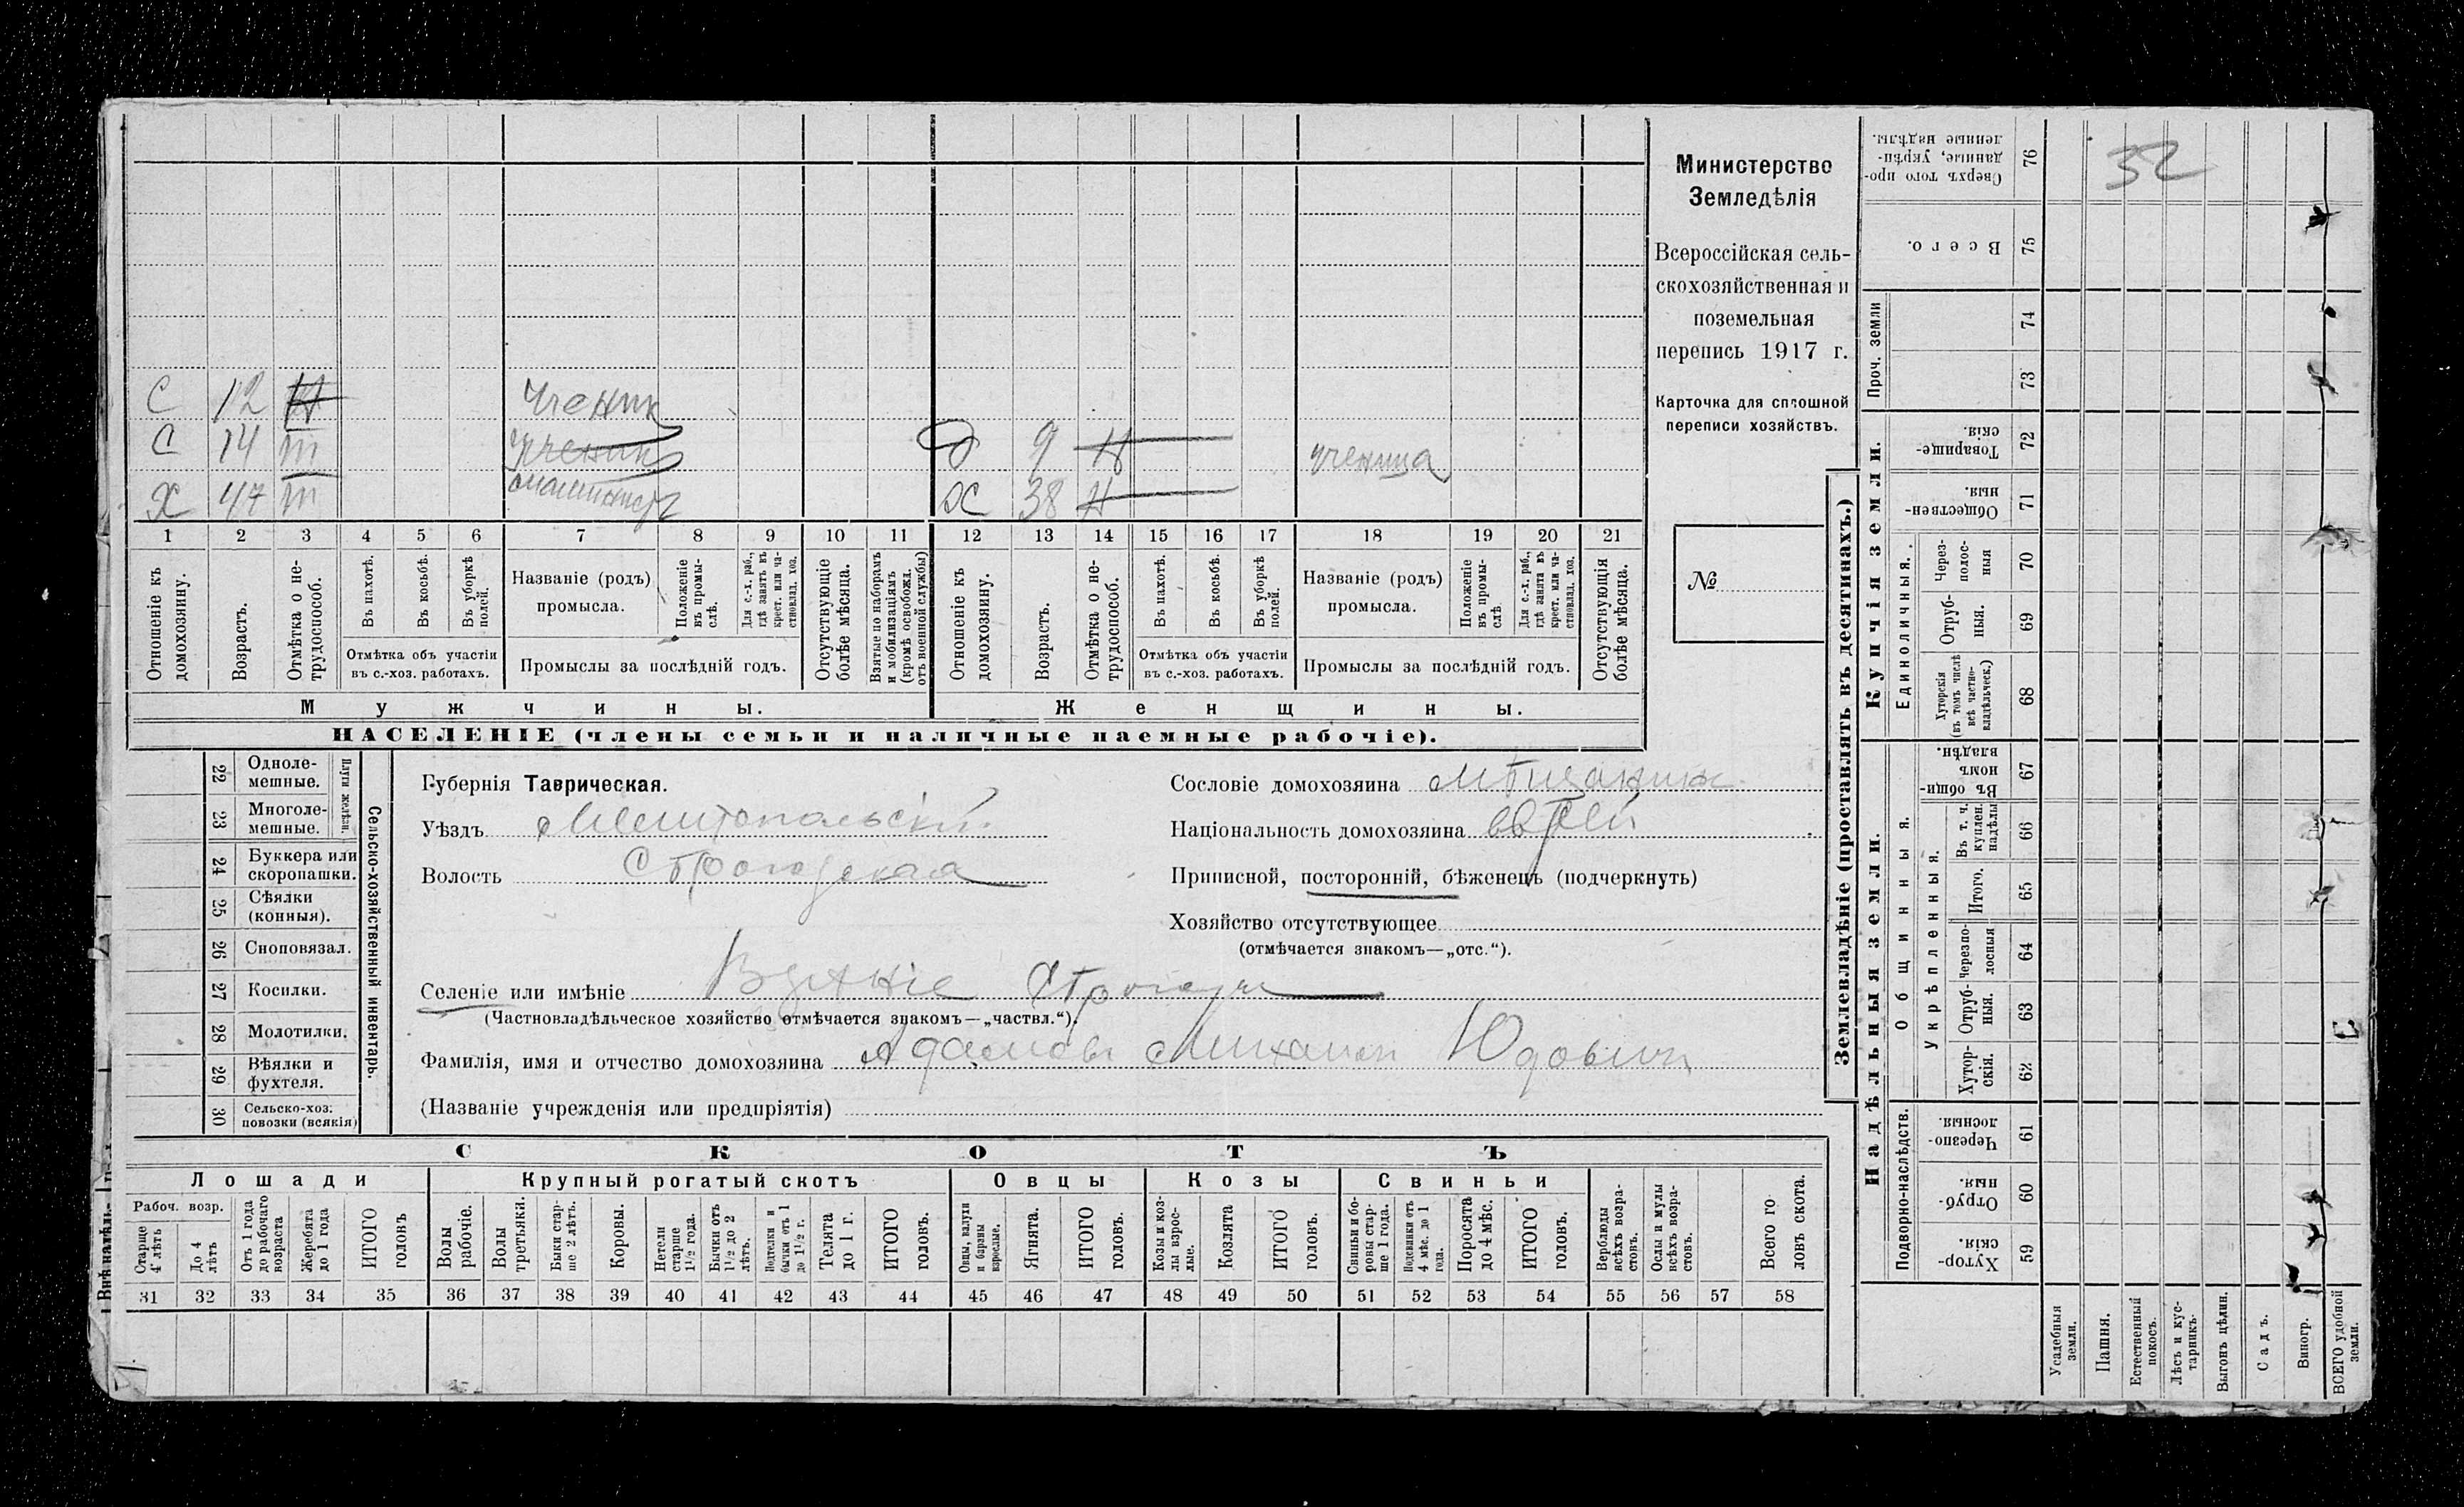 С 12 Н Ученик
С 14 т Ученик
Д 9 Н ученица
Х 47 т машинистъ
Ж 38 Н
1 2 3 4 5 6 7 8 9 10 11 12 13 14 15 16 17 18 19 20 21
Отношеніе къ домохозяину.
Возрастъ.
Отмѣтка о нетрудоспособ.
Въ пахотѣ.
Въ косьбѣ.
Въ уборкѣ полей.
Отмѣтка объ участіи въ с.-хоз. работахъ.
Названіе (родъ) промысла.
Положеніе въ промыслѣ.
Для с.-х. раб., гдѣ занятъ въ крест. или частновлад. хоз.
Промыслы за послѣдній годъ.
Отсутствующіе болѣе мѣсяца.
Взятые по наборамъ и мобилизаціямъ (кромѣ освобожд. отъ военной службы)
Отношеніе къ домохозяину.
Возрастъ.
Отмѣтка о нетрудоспособ.
Въ пахотѣ.
Въ косьбѣ.
Въ уборкѣ полей.
Отмѣтка объ участіи въ с.-хоз. работахъ.
Названіе (родъ) промысла.
Положеніе въ промыслѣ.
Для с.-х. раб., гдѣ занята въ крест. или частновлад. хоз.
Промыслы за послѣдній годъ.
Отсутствующія болѣе мѣсяца.
Мужчины.
Женщины.
НАСЕЛЕНІЕ (члены семьи и наличные наемные рабочіе).
Министерство
Земледѣлія
Всероссійская сель-
скохозяйственная и
поземельная
перепись 1917 г.
Карточка для сплошной
переписи хозяйствъ.
№
22 Одноле-мешные.
23 Многоле-мешные.
Плуги желѣзн.
24 Буккера или скоропашки.
25 Сѣялки (конныя).
26 Сноповязал.
27 Косилки.
28 Молотилки.
29 Вѣялки и фухтеля.
30 Сельско-хоз. повозки (всякія)
Сельско-хозяйственный инвентарь.
Губернія Таврическая.
Уѣздъ Мелитопольскій
Волость Строгодская
Сословіе домохозяина мѣщанинъ
Національность домохозяина еврей
Приписной, посторонній, бѣженецъ (подчеркнуть)
Хозяйство отсутствующее
(отмѣчается знакомъ—„отс.“).
Селеніе или имѣніе
(Частновладѣльческое хозяйство отмѣчается знакомъ—„частвл.“).
Фамилія, имя и отчество домохозяина Адамовъ Михаилъ Юдович
(Названіе учрежденія или предпріятія)
СКОТЪ
Лошади
Крупный рогатый скотъ
Овцы
Козы
Свиньи
Рабоч. возр.
Старше 4 лѣтъ
До 4 лѣтъ
Отъ 1 года до рабочаго возраста
Жеребята до 1 года
ИТОГО головъ
Волы рабочіе.
Волы третьяки.
Быки старше 2 лѣтъ.
Коровы.
Нетели старше 1½ года.
Бычки отъ 1½ до 2 лѣтъ.
Подтелки и бычки отъ 1 до 1½ г.
Телята до 1 г.
ИТОГО головъ.
Овцы, валухи и бараны взрослые.
Ягнята.
ИТОГО головъ.
Козы и козлы взрослые.
Козлята
ИТОГО головъ.
Свиньи и боровы старше 1 года.
Подсвинки отъ 4 мѣс. до 1 года.
Поросята до 4 мѣс.
ИТОГО головъ.
Верблюды всѣхъ возрастовъ.
Ослы и мулы всѣхъ возрастовъ.
Всего головъ скота.
31 32 33 34 35 36 37 38 39 40 41 42 43 44 45 46 47 48 49 50 51 52 53 54 55 56 57 58
Землевладѣніе (проставлять въ десятинахъ.)
Купчія земли.
Надѣльныя земли.
Проч. земли
Единоличныя.
Общинныя.
Укрѣпленныя.
Подворно-наслѣдств.
Сверхъ того проданные, укрѣпленные надѣлы. 76
32
Всего. 75
74
73
Товарищескія. 72
Общественныя. 71
Через-полосныя 70
Отрубныя. 69
Хуторскія (въ томъ числѣ всѣ частновладѣльческ.) 68
Въ общиномъ владѣн. 67
Въ т. ч. куплен. надѣлы 66
Итого. 65
Черезполосныя 64
Отрубныя. 63
Хуторскія. 62
Черезполосныя. 61
Отрубныя. 60
Хуторскія. 59
Усадебныя земли.
Пашня.
Естественный покосъ.
Лѣсъ и кустарникъ.
Выгонъ цѣлин.
Садъ.
Виногр.
ВСЕГО удобной земли.